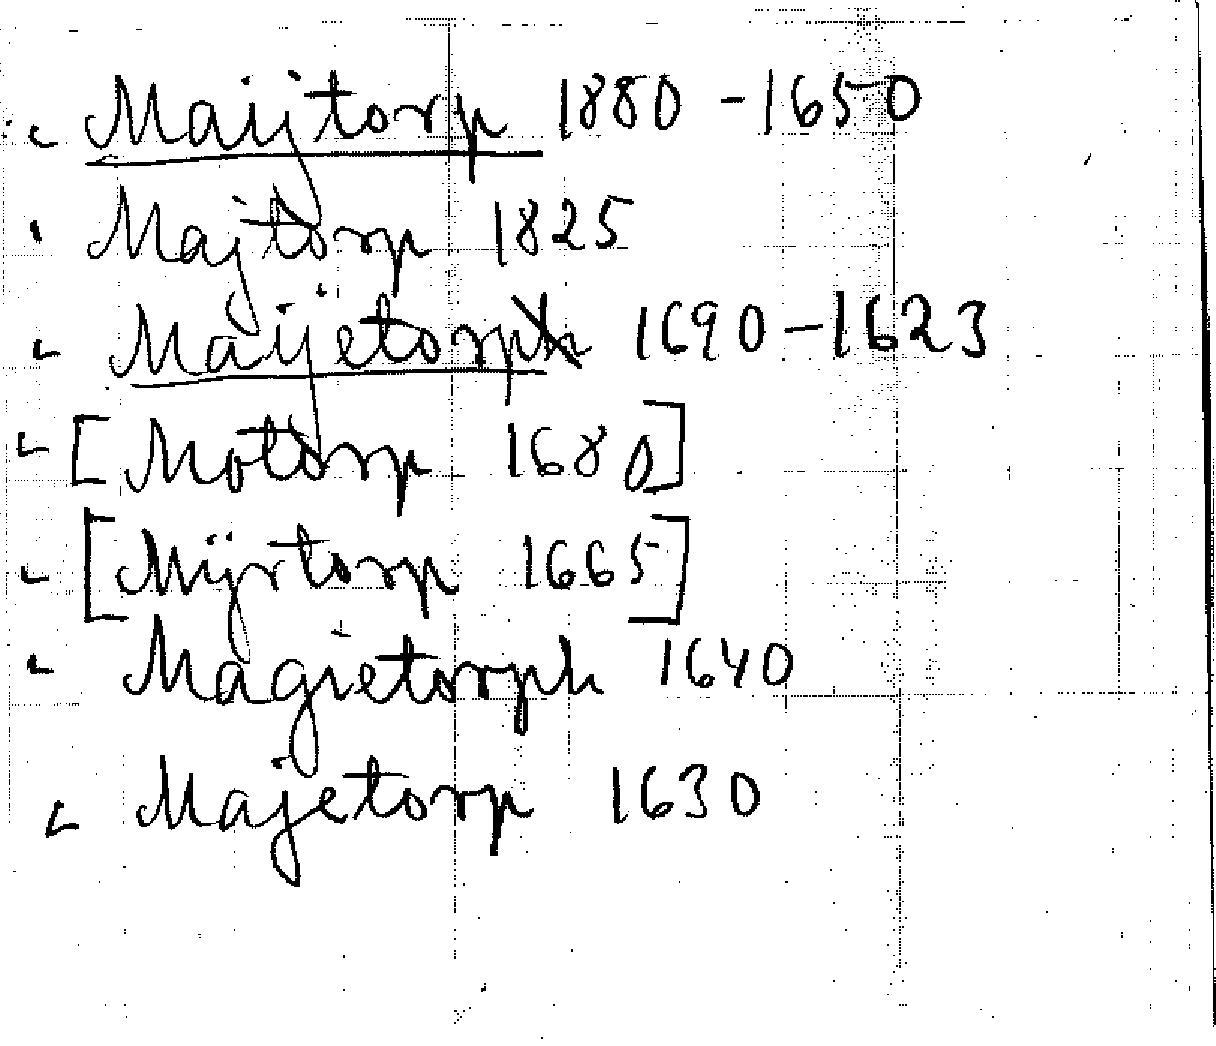 Maijtorp 1880 - 1650
Majtorp 1825
Maijetorp 1690 - 1623
[Motorp 1680]
[Mijrtorp 1665]
Magietorph 1640
Majetorp 1630